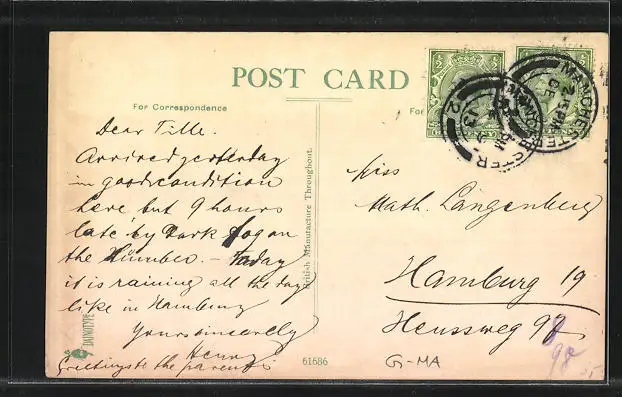 POST CARD
For Correspondence
Dear Tille.
Arrived yesterday
in good condition
here but 9 hours
late by Dark fog on
the Humber. – Today
it is raining all the day
like in Hamburg
Yours sincerelly
Henry
Greetings to the parents
DAINTYPE
British Manufacture Throughout.
61686
For
½ ½
½
MANCHESTER
2 15 PM
MANCHESTER
12
13
Miss
Math. Langenberg
Hamburg 19
Heussweg 98
98
G-MA